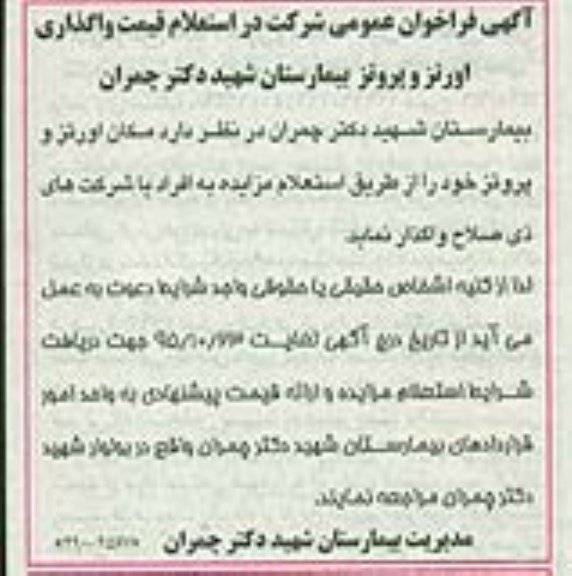 آگهی فراخوان عمومی شرکت در استعلام قیمت واگذاری
اورتز و پروتز بیمارستان شهید دکتر چمران
بیمارستان شهید دکتر چمران در نظر دارد مکان اورتز و
پروتز خود را از طریق استعلام مزایده به افراد یا شرکت های
ذی صلاح واگذار نماید
لذا از کلیه اشخاص حقیقی یا حقوقی واجد شرایط دعوت به عمل
می آید از تاریخ درج آگهی لغایت ۹۵/۱۰/۲۳ جهت دریافت
شرایط استعلام مزایده و ارائه قیمت پیشنهادی به واحد امور
قراردادهای بیمارستان شهید دکتر چمران واقع در بولوار شهید
دکتر چمران مراجعه نمایند.
مدیریت بیمارستان شهید دکتر چمران